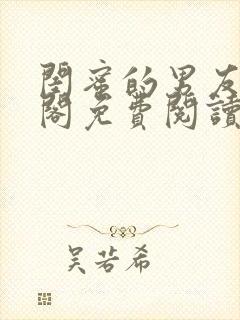 閨蜜的男友
閣免費閱讀
吳若希